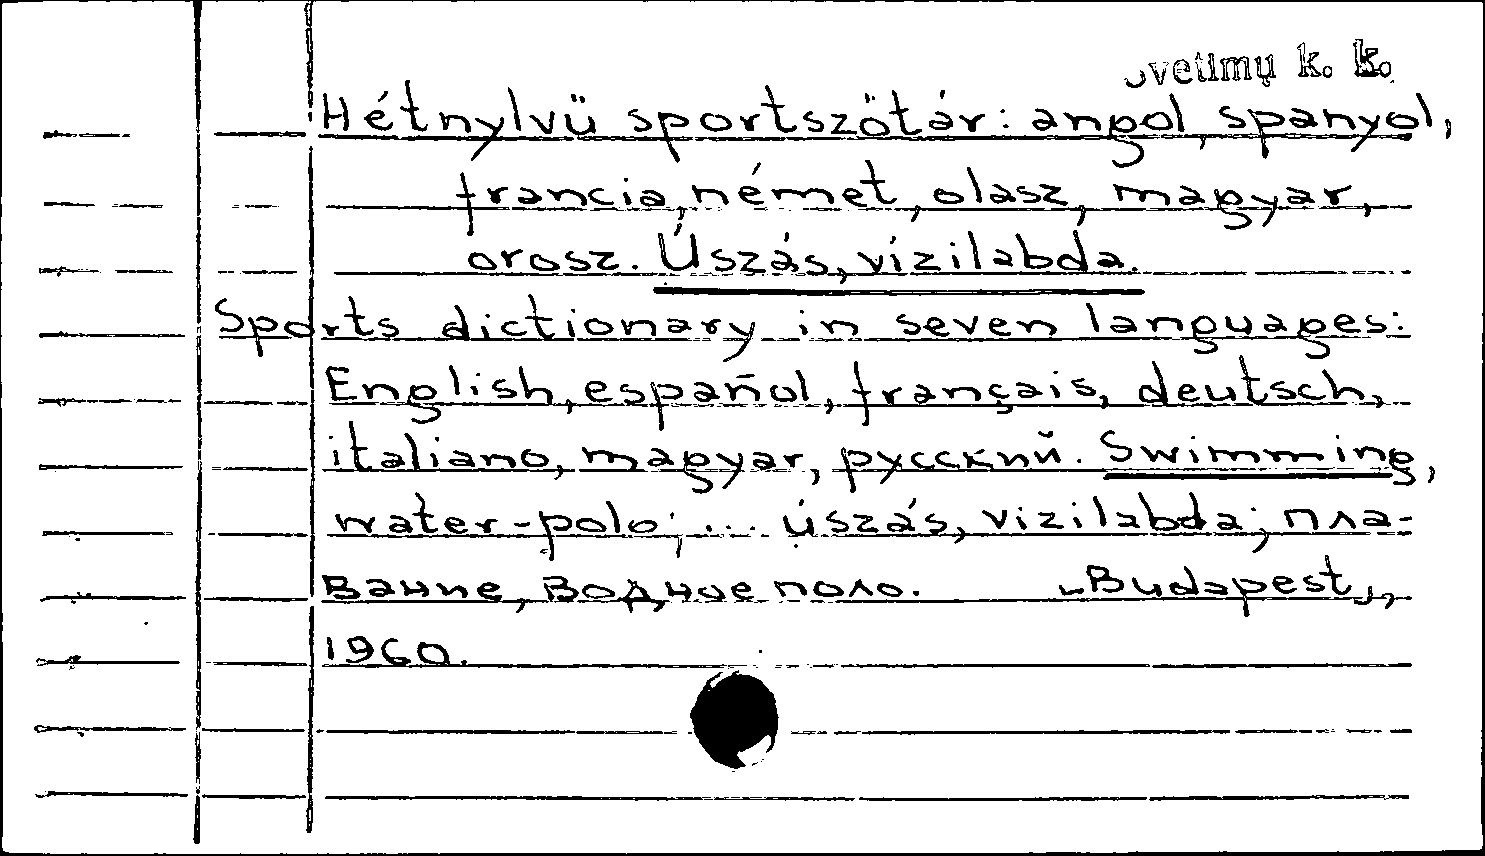 Svetimų k. k.
Hétnylvü sportszötár: angol, spanyol,
francia, német, olasz, magyar,
orosz. Úszás, vízilabda.
Sports dictionary in seven languages:
English, español, français, deutsch,
italiano, magyar, русский. Swimming,
water-polo; ... úszás, vizilabda; пла-
вание, водное поло. „Budapest„,
1960.